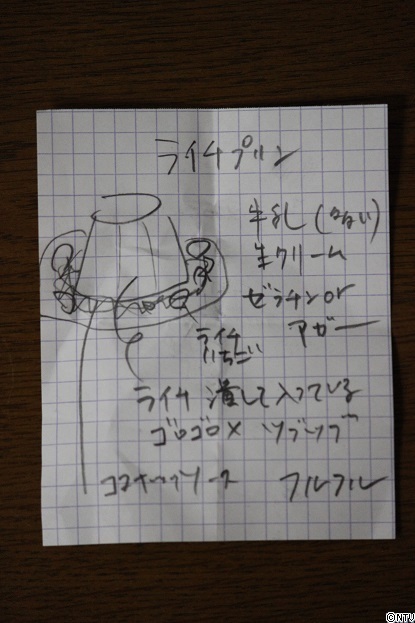 ライチプリン
牛乳(
生クリーム
ゼラチンor
アガー
ライチ
いちご
ライチ 潰して入っている
ゴロゴロ× ツブツブ
ココナッツソース フルフル
©NTU